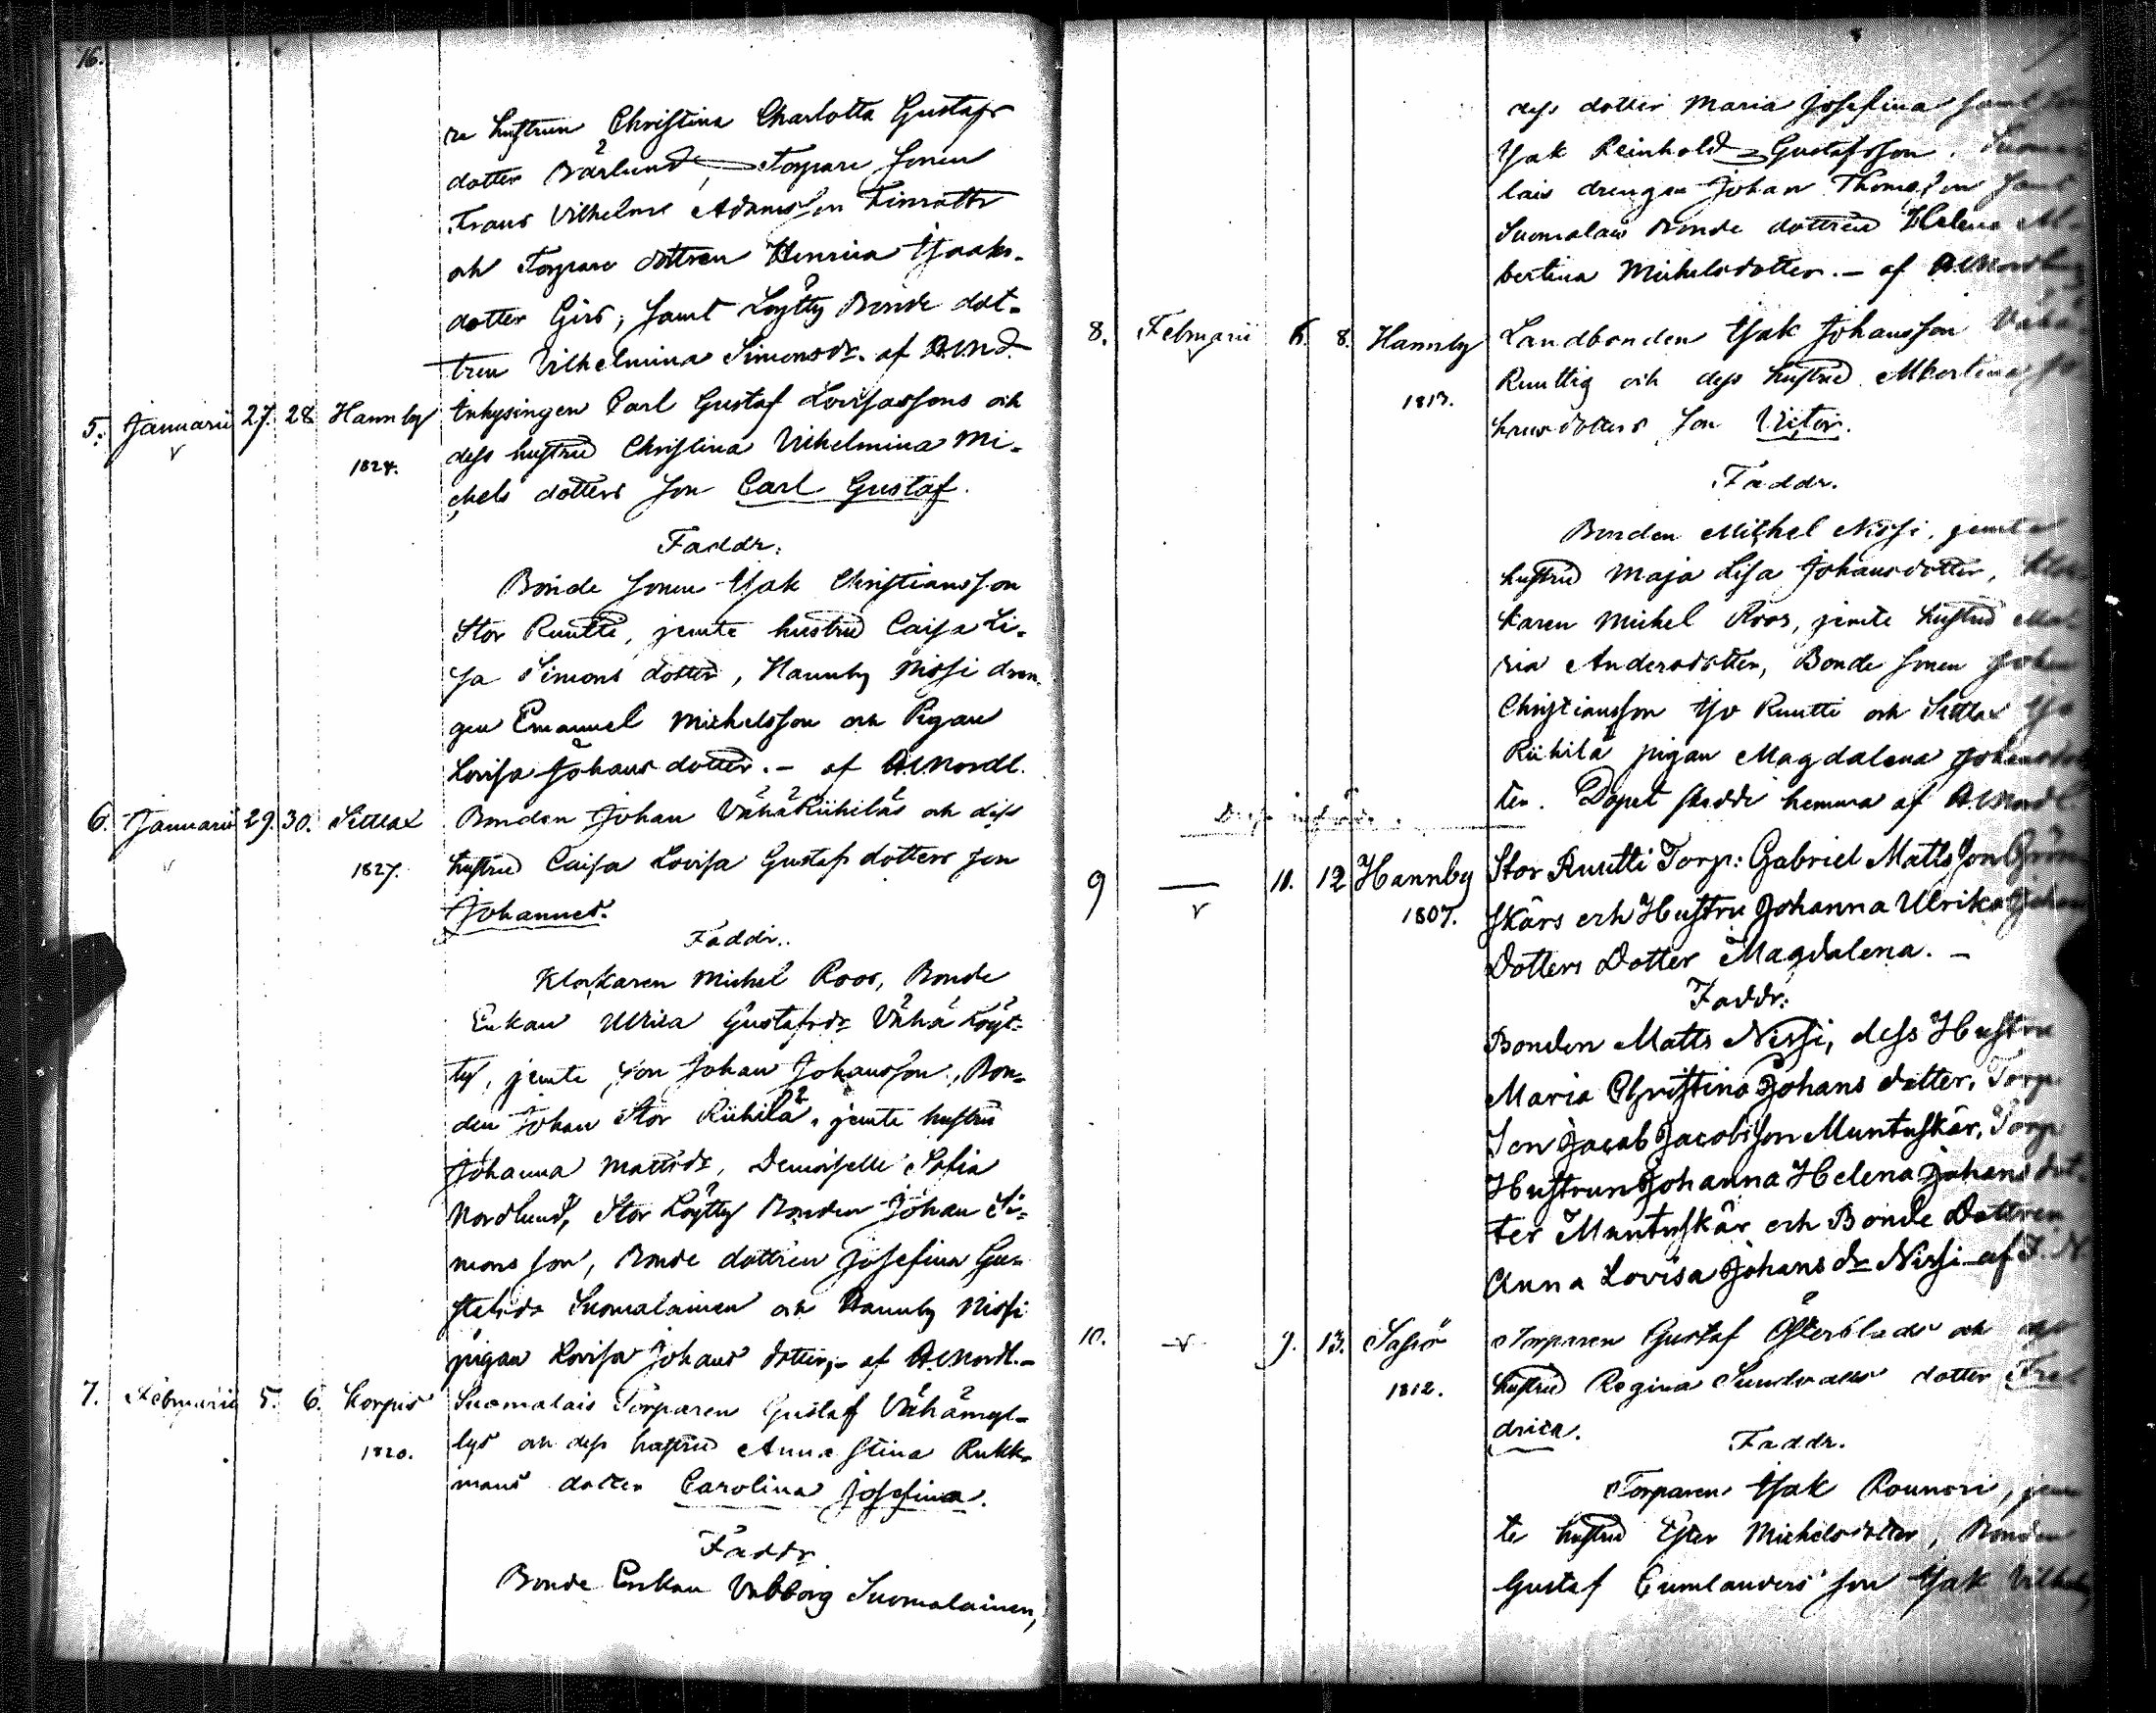 16.
re hustrun Christina Charlotta Gustafs
dotter Bärlund, Torpare sonen
Frans Vilhelm Adamsson Finnätts
och Torpare dottren Henrica Isaaks-
dotter Girs, samt Löytty Bonde dot-
tren Vilhelmina Simonsdr. af A.U.Nd.
5. Januarii 27. 28. Hannby Inhysingen Carl Gustaf Lovisassons och
v 1824. dess hustru Christina Vilhelmina Mi-
chels dotters son Carl Gustaf.
Faddr.
Bonde sonen Isak Christiansson
Stor Ruutti, jemte hustru Caisa Li-
sa Simons dotter, Hannby Nissi dren-
gen Emanuel Michelsson och Pigan
Lovisa Johans dotter. – af A.U.Nordl.
6. Januarii 29. 30. Sittlax Bonden Johan Vähä Riihiläs och dess
v 1827. hustru Caisa Lovisa Gustafs dotters son
Johannes.
Faddr.
Klockaren Michel Roos, Bonde
Enkan Ulrica Gustafsdr Vähä Löyt-
ty, jemte son Johan Johansson, Bon-
den Johan Stor Riihilä, jemte hustru
Johanna Mattsdr, Demoiselle Sofia
Nordlund, Stor Löytty Bonden Johan Si-
mons son, Bonde dottren Josefina Gu-
stafsdr Suomalainen och Hannby Nissi
pigan Lovisa Johans dotter, – af A.U.Nordl. –
7. Februarii 5. 6. Korpis Suomalais Torparen Gustaf Vähämyl-
1820. lys och dess hustru Anna Stina Rukk-
mans dotter Carolina Josefina.
Faddr
Bonde Enkan Valborg Suomalainen,
dess dotter Maria Josefina samt son
Isak Reinhold Gustafsson. Suoma-
lais drengen Johan Thomasson samt
Suomalais Bonde dottren Helena Al-
bertina Michelsdotter. – af A.U.Nordlund
8. Februarii 6. 8. Hannby Landbonden Isak Johansson Vähä
v 1813. Ruuttis och dess hustru Albertina Jo-
hans dotters son Victor.
Faddr.
Bonden Michel Nissi, jemte
hustru Maja Lisa Johansdotter, Kloc-
karen Michel Roos, jemte hustru Ma-
ria Andersdotter, Bonde sonen Johan
Christiansson Iso Ruutti och Sittlax Iso
Riihilä pigan Magdalena Johansdot-
ter. Dopet skedde hemma af A.U.Nordl.
9 — 11. 12 Hannby Stor Ruutti Torp: Gabriel Mattsson Grön-
v 1807. skärs och Hustru Johanna Ulrika Johans
Dotters Dotter Magdalena. –
Faddr:
Bonden Matts Nissi, dess Hustru
Maria Christina Johans dotter, Torp
Son Jacob Jacobsson Muntuskär, Torp
Hustrun Johanna Helena Johans dot-
ter Muntuskär och Bonde Dottren
Anna Lovisa Johans dr Nissi af J. N
10. v 9. 13. Sastö Torparen Gustaf Österblads och dess
1812. hustru Regina Sundvalls dotter Fred
drica.
Faddr.
Torparen Isak Rounori, jem
te hustru Ester Michelsdotter, Bonden
Gustaf Cumlanders son Isak Vilhelm